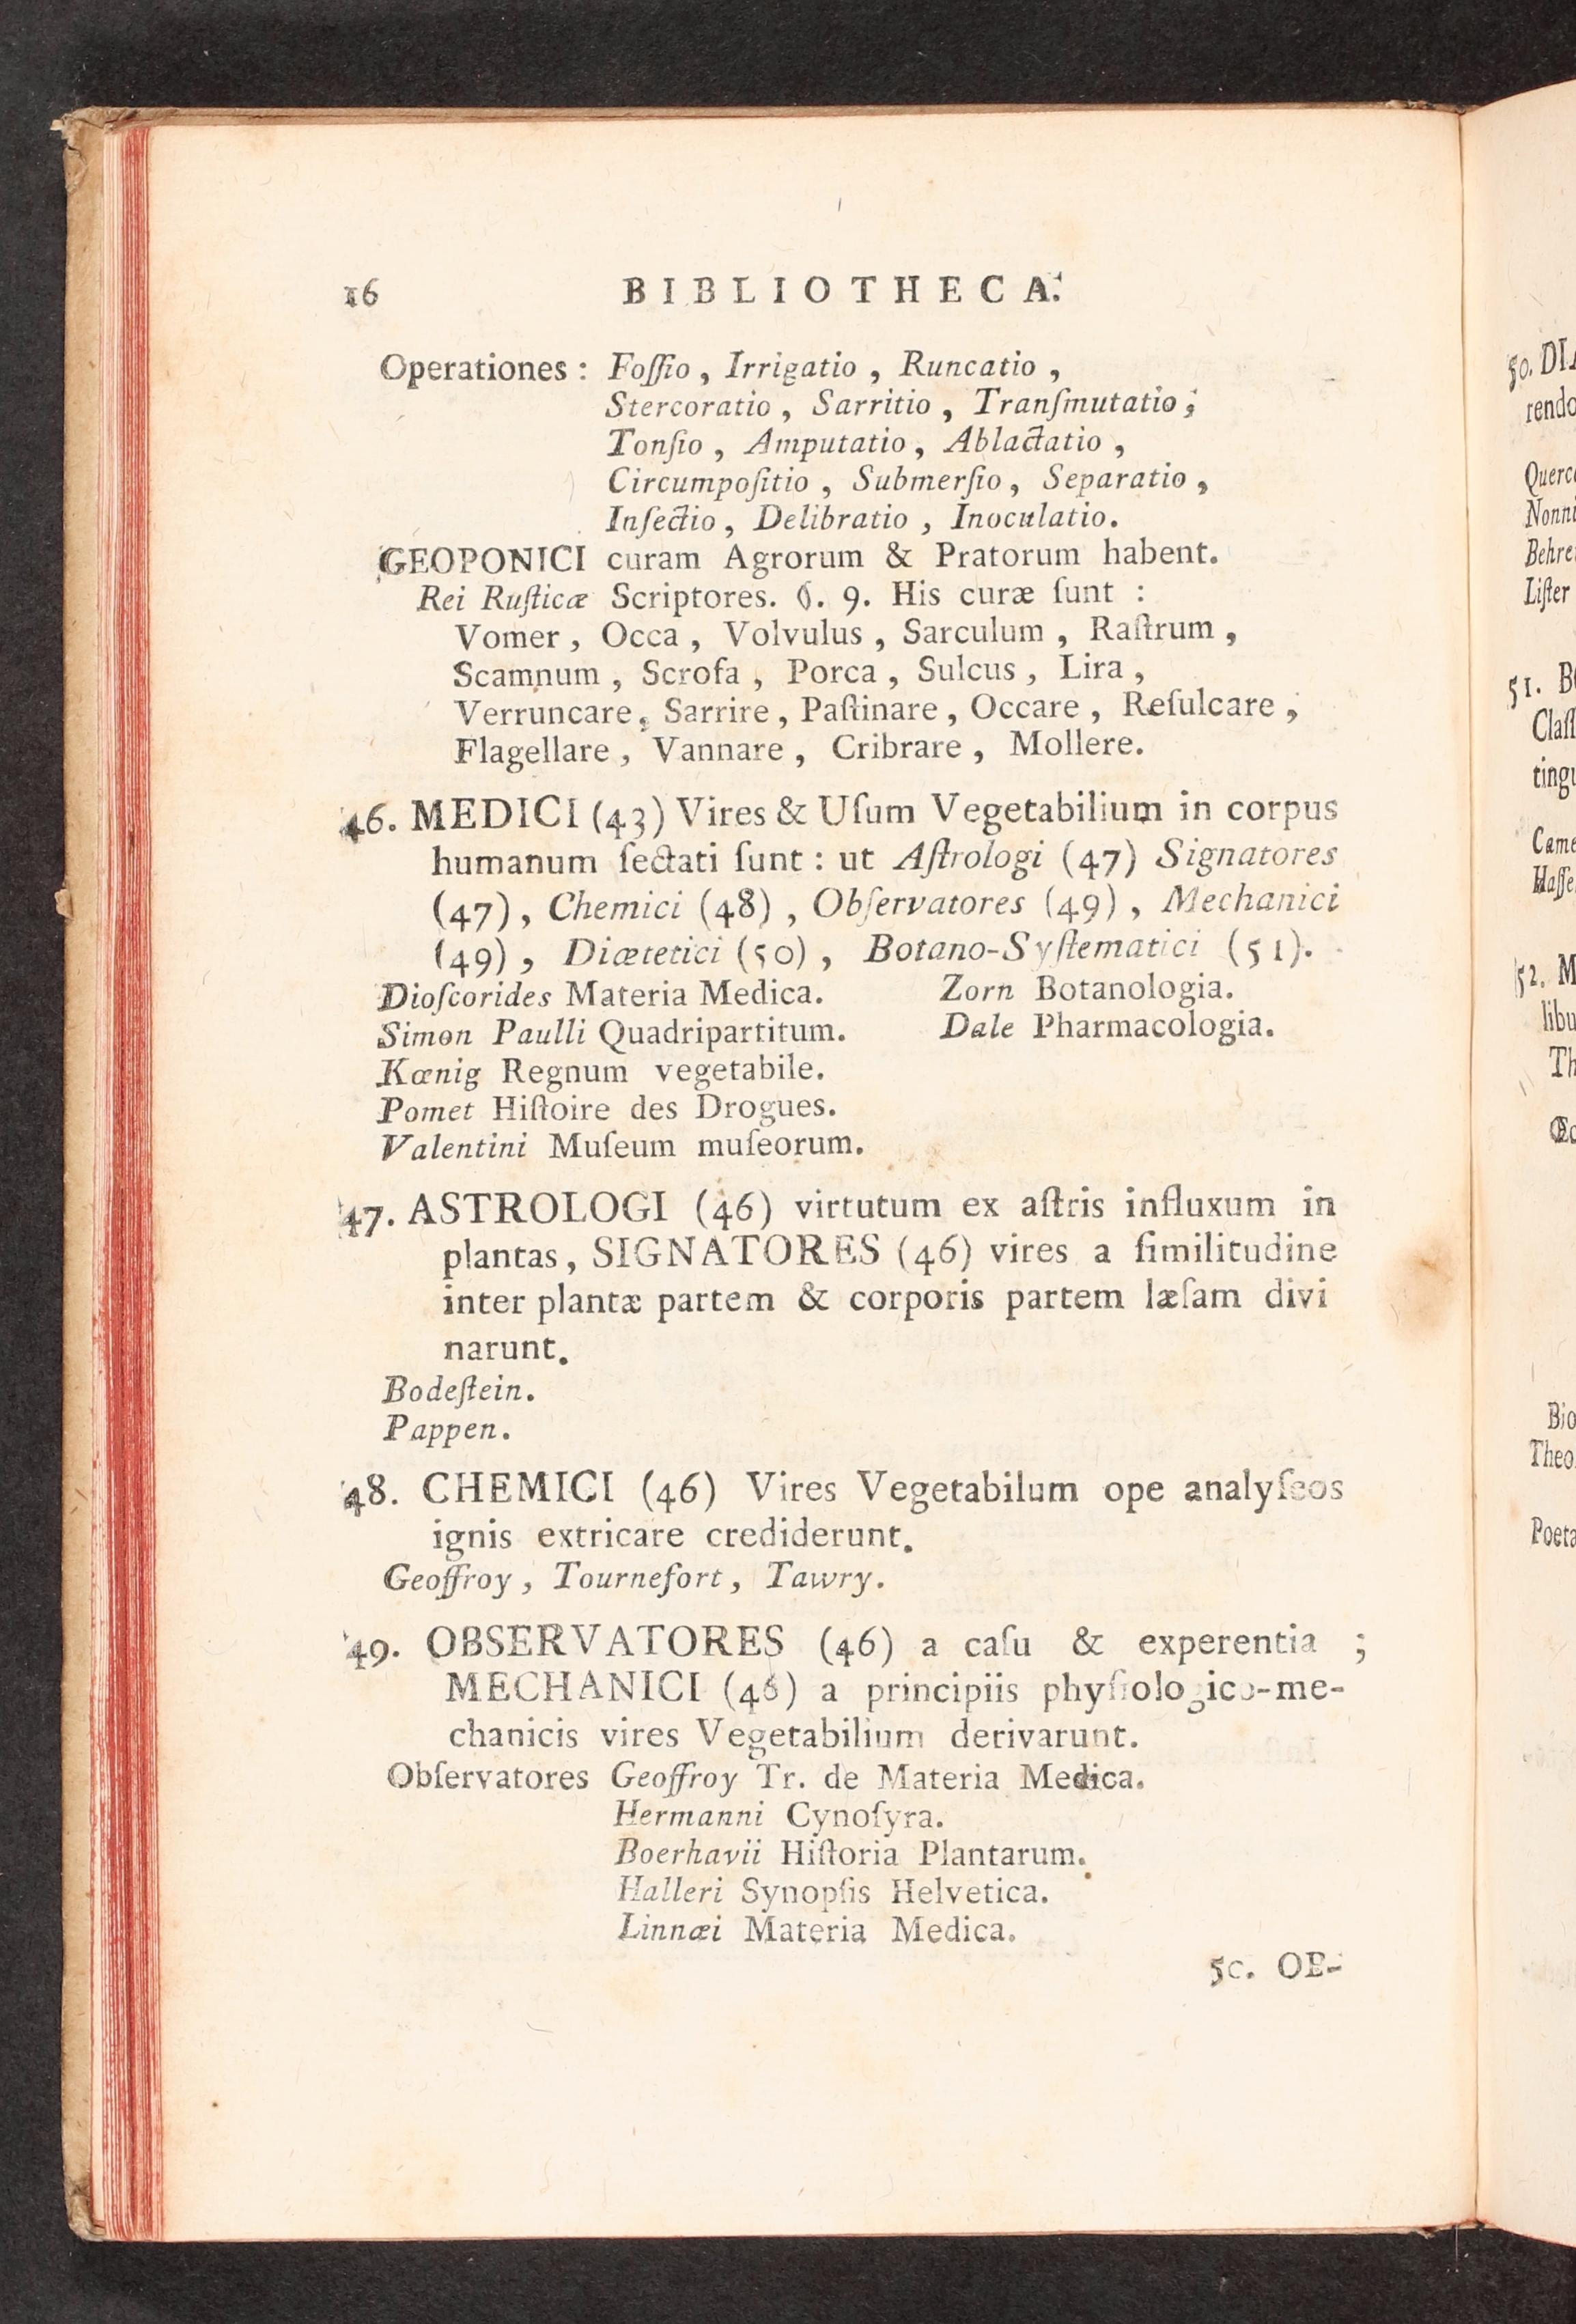 16 BIBLIOTHECA.
Operationes : Foſſio , Irrigatio , Runcatio ,
Stercoratio , Sarritio , Tranſmutatio ;
Tonſio , Amputatio , Ablactatio ,
Circumpoſitio , Submerſio , Separatio ,
Inſectio , Delibratio , Inoculatio.
GEOPONICI curam Agrorum & Pratorum habent.
Rei Ruſticæ Scriptores. §. 9. His curæ ſunt :
Vomer , Occa , Volvulus , Sarculum , Raſtrum ,
Scamnum , Scrofa , Porca , Sulcus , Lira ,
Verruncare , Sarrire , Paſtinare , Occare , Reſulcare ,
Flagellare , Vannare , Cribrare , Mollere.
46. MEDICI (43) Vires & Uſum Vegetabilium in corpus
humanum ſectati ſunt : ut Aſtrologi (47) Signatores
(47) , Chemici (48) , Obſervatores (49) , Mechanici
(49) , Diætetici (50) , Botano-Syſtematici (51).
Dioſcorides Materia Medica. Zorn Botanologia.
Simon Paulli Quadripartitum. Dale Pharmacologia.
Kœnig Regnum vegetabile.
Pomet Hiſtoire des Drogues.
Valentini Muſeum muſeorum.
47. ASTROLOGI (46) virtutum ex aſtris influxum in
plantas , SIGNATORES (46) vires a ſimilitudine
inter plantæ partem & corporis partem læſam divi
narunt.
Bodeſtein.
Pappen.
48. CHEMICI (46) Vires Vegetabilum ope analyſeos
ignis extricare crediderunt.
Geoffroy , Tournefort , Tawry.
49. OBSERVATORES (46) a caſu & experentia ;
MECHANICI (46) a principiis phyſiologico-me-
chanicis vires Vegetabilium derivarunt.
Obſervatores Geoffroy Tr. de Materia Medica.
Hermanni Cynoſyra.
Boerhavii Hiſtoria Plantarum.
Halleri Synopſis Helvetica.
Linnæi Materia Medica.
50. OE-
50. DIÆ
rendo
Nonni
Liſter
51.
52. M